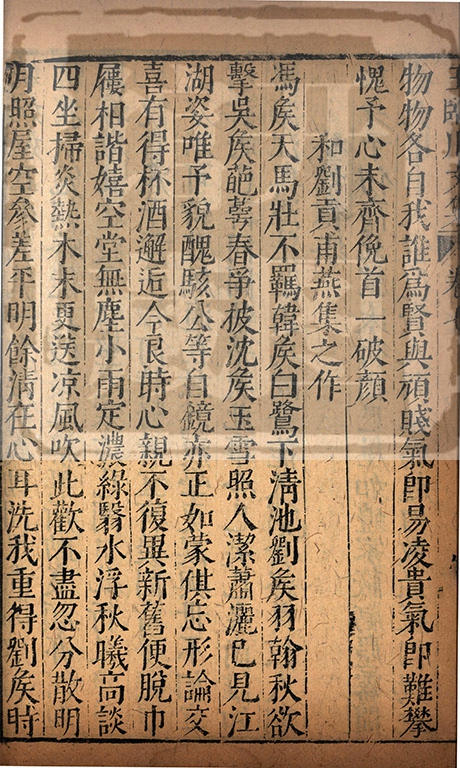 物物各自我誰為賢與頑賤氣即易凌貴氣即難攀
愧予心未齊俛首一破顏
和劉貢甫燕集之作
馮矦天馬壯不羈韓矦白鷺下清池劉矦羽翰秋欲
擊吳矦葩蕚春爭披沈矦玉雪照人潔蕭灑已見江
湖姿唯予貌醜駭公等自鏡亦正如蒙倛忘形論交
喜有得杯酒邂逅今良時心親不復異新舊便脫巾
屨相諧嬉空堂無塵小雨定濃綠翳水浮秋曦高談
四坐掃炎熱木末更送凉風吹此歡不盡忽分散明
月照屋空參差平明餘清在心耳洗我重得劉矦時